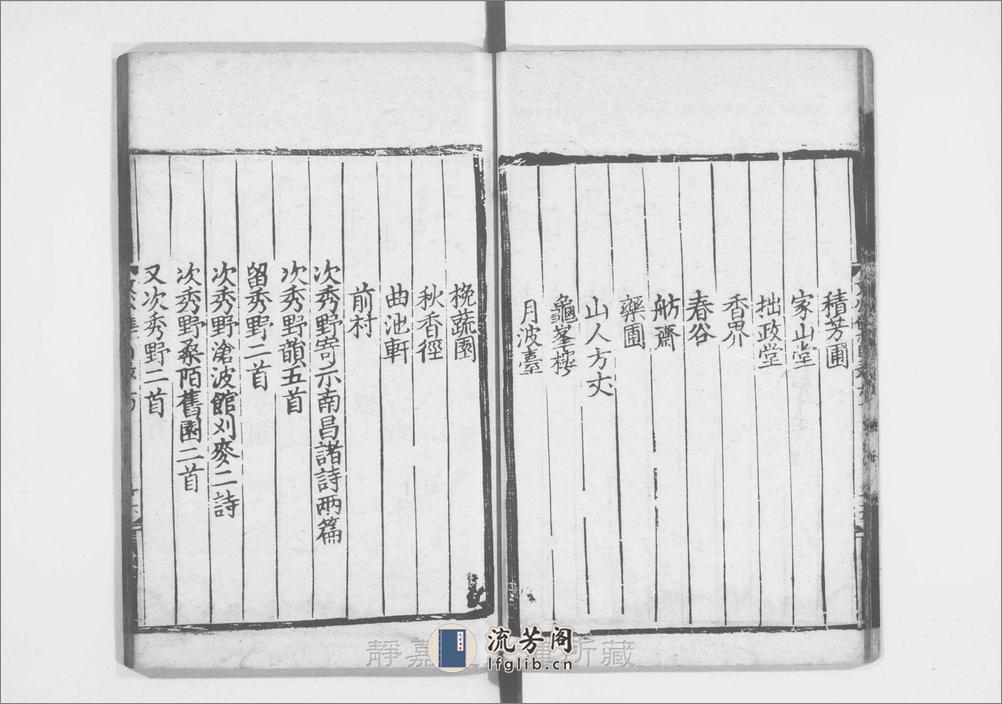 積芳圃
家山堂
拙政堂
香界
春谷
舫齋
藥圃
山人方丈
龜峯樓
月波臺
挽蔬園
秋香徑
曲池軒
前村
次秀野寄示南昌諸詩兩篇
次秀野韻五首
留秀野二首
次秀野滄波館刈麥二詩
次秀野桑陌舊園二首
又次秀野二首
流芳阁
lfglib.cn
靜嘉
所藏